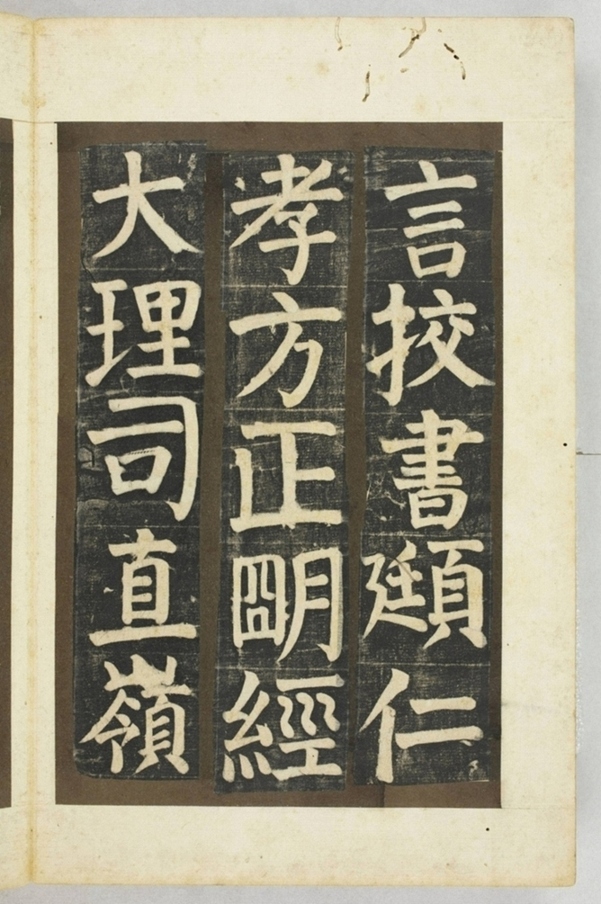 言挍書頲仁
孝方正朙經
大理司直嶺